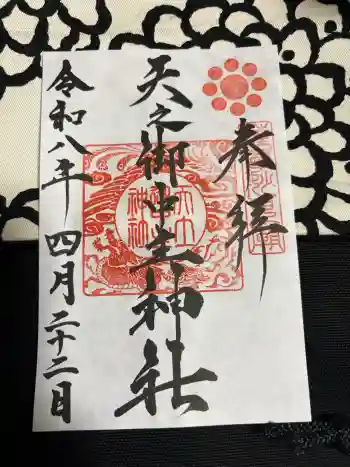 奉拝
天之御中主神社
令和八年四月二十二日